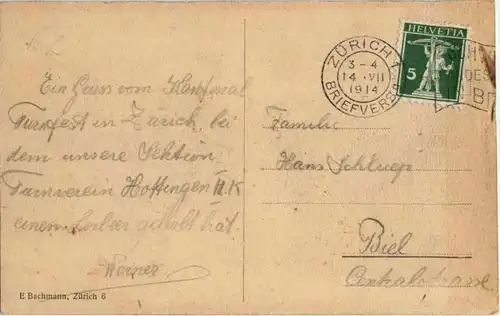 Ein Gruss vom Kantonal
Turnfest in Zürich, bei
dem unsere Sektion
Turnverein Hottingen II. K
einen Lorbeer geholt hat.
Werner
E Bachmann, Zürich 6
HELVETIA
5
ZÜRICH 1
3-4
14.VII
1914
BRIEFVERS
Familie
Hans Schluep
Biel
Centralstrasse